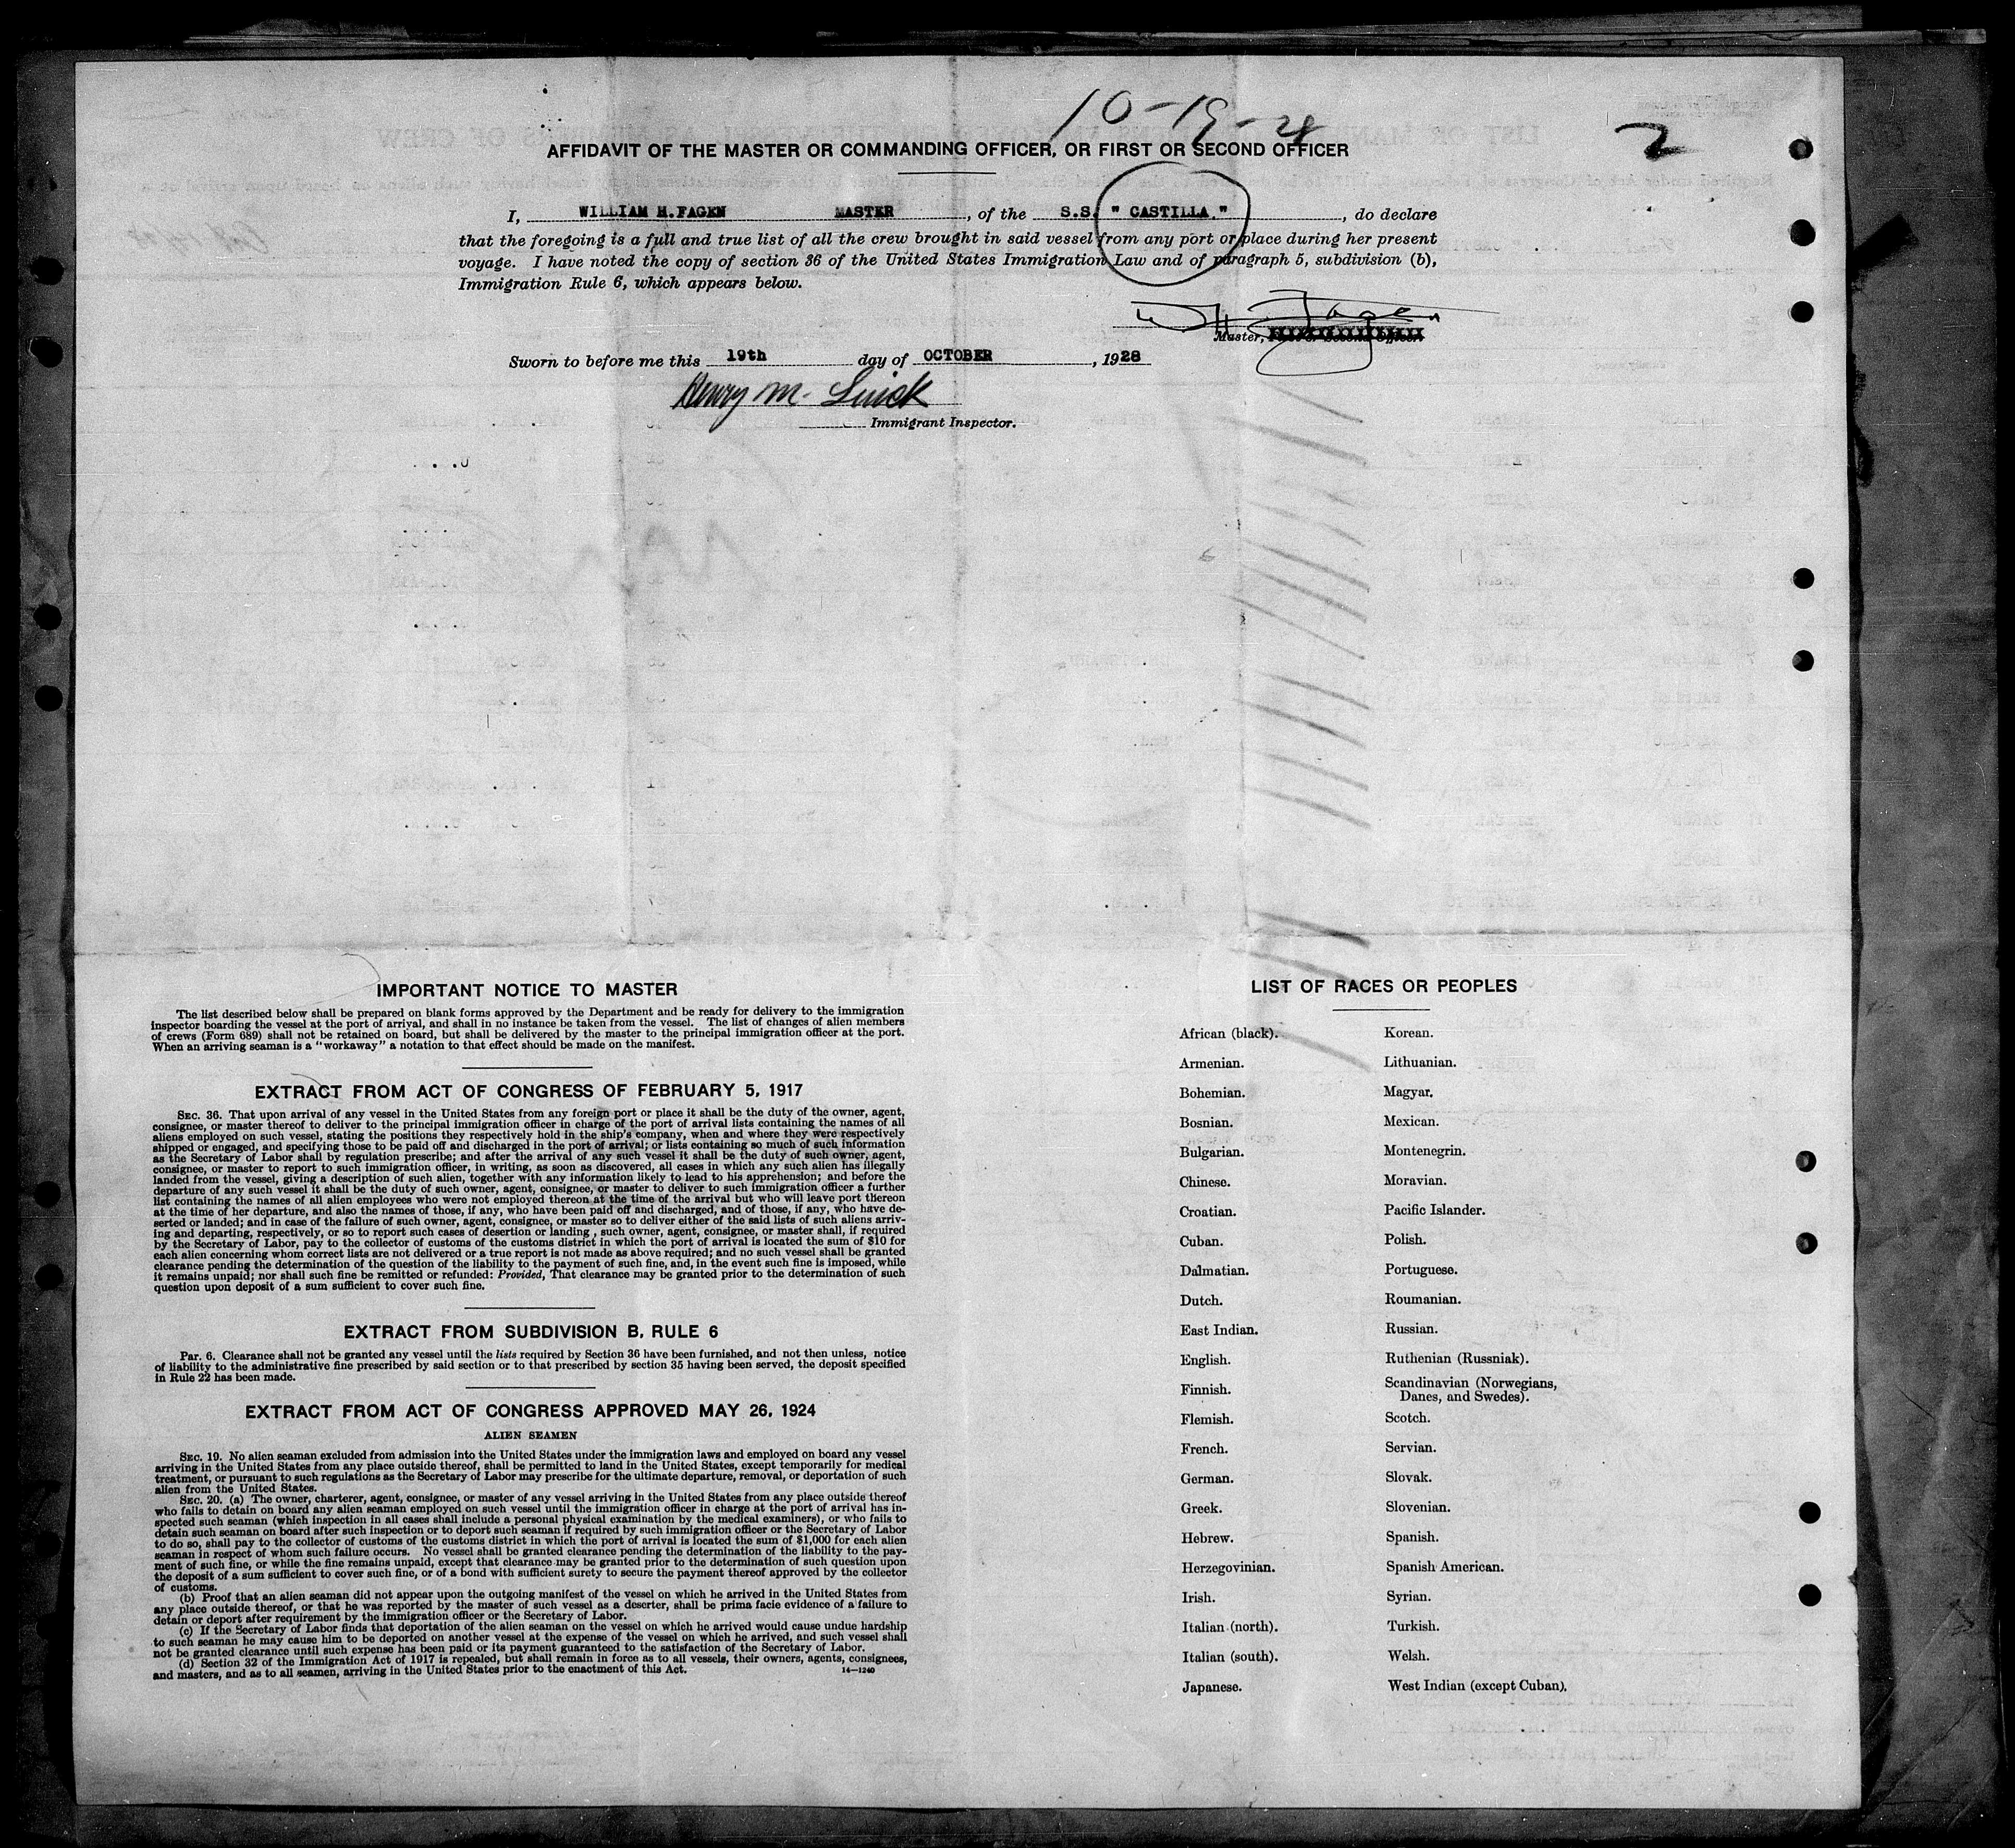 10-19-28
2
AFFIDAVIT OF THE MASTER OR COMMANDING OFFICER, OR FIRST OR SECOND OFFICER
I, WILLIAM H.FAGEN MASTER, of the S.S. " CASTILLA. ", do declare
that the foregoing is a full and true list of all the crew brought in said vessel from any port or place during her present
voyage. I have noted the copy of section 36 of the United States Immigration Law and of paragraph 5, subdivision (b),
Immigration Rule 6, which appears below.
W H. Fagen
Master, First or Second Officer.
Sworn to before me this 19th day of OCTOBER, 1928
Henry M.
Immigrant Inspector.
IMPORTANT NOTICE TO MASTER
The list described below shall be prepared on blank forms approved by the Department and be ready for delivery to the immigration
inspector boarding the vessel at the port of arrival, and shall in no instance be taken from the vessel. The list of changes of alien members
of crews (Form 689) shall not be retained on board, but shall be delivered by the master to the principal immigration officer at the port.
When an arriving seaman is a "workaway" a notation to that effect should be made on the manifest.
EXTRACT FROM ACT OF CONGRESS OF FEBRUARY 5, 1917
SEC. 36. That upon arrival of any vessel in the United States from any foreign port or place it shall be the duty of the owner, agent,
consignee, or master thereof to deliver to the principal immigration officer in charge of the port of arrival lists containing the names of all
aliens employed on such vessel, stating the positions they respectively hold in the ship's company, when and where they were respectively
shipped or engaged, and specifying those to be paid off and discharged in the port of arrival; or lists containing so much of such information
as the Secretary of Labor shall by regulation prescribe; and after the arrival of any such vessel it shall be the duty of such owner, agent,
consignee, or master to report to such immigration officer, in writing, as soon as discovered, all cases in which any such alien has illegally
landed from the vessel, giving a description of such alien, together with any information likely to lead to his apprehension; and before the
departure of any such vessel it shall be the duty of such owner, agent, consignee, or master to deliver to such immigration officer a further
list containing the names of all alien employees who were not employed thereon at the time of the arrival but who will leave port thereon
at the time of her departure, and also the names of those, if any, who have been paid off and discharged, and of those, if any, who have de-
serted or landed; and in case of the failure of such owner, agent, consignee, or master so to deliver either of the said lists of such aliens arriv-
ing and departing, respectively, or so to report such cases of desertion or landing , such owner, agent, consignee, or master shall, if required
by the Secretary of Labor, pay to the collector of customs of the customs district in which the port of arrival is located the sum of $10 for
each alien concerning whom correct lists are not delivered or a true report is not made as above required; and no such vessel shall be granted
clearance pending the determination of the question of the liability to the payment of such fine, and, in the event such fine is imposed, while
it remains unpaid; nor shall such fine be remitted or refunded: Provided, That clearance may be granted prior to the determination of such
question upon deposit of a sum sufficient to cover such fine.
EXTRACT FROM SUBDIVISION B, RULE 6
Par. 6. Clearance shall not be granted any vessel until the lists required by Section 36 have been furnished, and not then unless, notice
of liability to the administrative fine prescribed by said section or to that prescribed by section 35 having been served, the deposit specified
in Rule 22 has been made.
EXTRACT FROM ACT OF CONGRESS APPROVED MAY 26, 1924
ALIEN SEAMEN
SEC. 19. No alien seaman excluded from admission into the United States under the immigration laws and employed on board any vessel
arriving in the United States from any place outside thereof, shall be permitted to land in the United States, except temporarily for medical
treatment, or pursuant to such regulations as the Secretary of Labor may prescribe for the ultimate departure, removal, or deportation of such
alien from the United States.
SEC. 20. (a) The owner, charterer, agent, consignee, or master of any vessel arriving in the United States from any place outside thereof
who fails to detain on board any alien seaman employed on such vessel until the immigration officer in charge at the port of arrival has in-
spected such seaman (which inspection in all cases shall include a personal physical examination by the medical examiners), or who fails to
detain such seaman on board after such inspection or to deport such seaman if required by such immigration officer or the Secretary of Labor
to do so, shall pay to the collector of customs of the customs district in which the port of arrival is located the sum of $1,000 for each alien
seaman in respect of whom such failure occurs. No vessel shall be granted clearance pending the determination of the liability to the pay-
ment of such fine, or while the fine remains unpaid, except that clearance may be granted prior to the determination of such question upon
the deposit of a sum sufficient to cover such fine, or of a bond with sufficient surety to secure the payment thereof approved by the collector
of customs.
(b) Proof that an alien seaman did not appear upon the outgoing manifest of the vessel on which he arrived in the United States from
any place outside thereof, or that he was reported by the master of such vessel as a deserter, shall be prima facie evidence of a failure to
detain or deport after requirement by the immigration officer or the Secretary of Labor.
(c) If the Secretary of Labor finds that deportation of the alien seaman on the vessel on which he arrived would cause undue hardship
to such seaman he may cause him to be deported on another vessel at the expense of the vessel on which he arrived, and such vessel shall
not be granted clearance until such expense has been paid or its payment guaranteed to the satisfaction of the Secretary of Labor.
(d) Section 32 of the Immigration Act of 1917 is repealed, but shall remain in force as to all vessels, their owners, agents, consignees,
and masters, and as to all seamen, arriving in the United States prior to the enactment of this Act.
14—1240
LIST OF RACES OR PEOPLES
African (black).
Armenian.
Bohemian.
Bosnian.
Bulgarian.
Chinese.
Croatian.
Cuban.
Dalmatian.
Dutch.
East Indian.
English.
Finnish.
Flemish.
French.
German.
Greek.
Hebrew.
Herzegovinian.
Irish.
Italian (north).
Italian (south).
Japanese.
Korean.
Lithuanian.
Magyar.
Mexican.
Montenegrin.
Moravian.
Pacific Islander.
Polish.
Portuguese.
Roumanian.
Russian.
Ruthenian (Russniak).
Scandinavian (Norwegians,
Danes, and Swedes).
Scotch.
Servian.
Slovak.
Slovenian.
Spanish.
Spanish American.
Syrian.
Turkish.
Welsh.
West Indian (except Cuban).